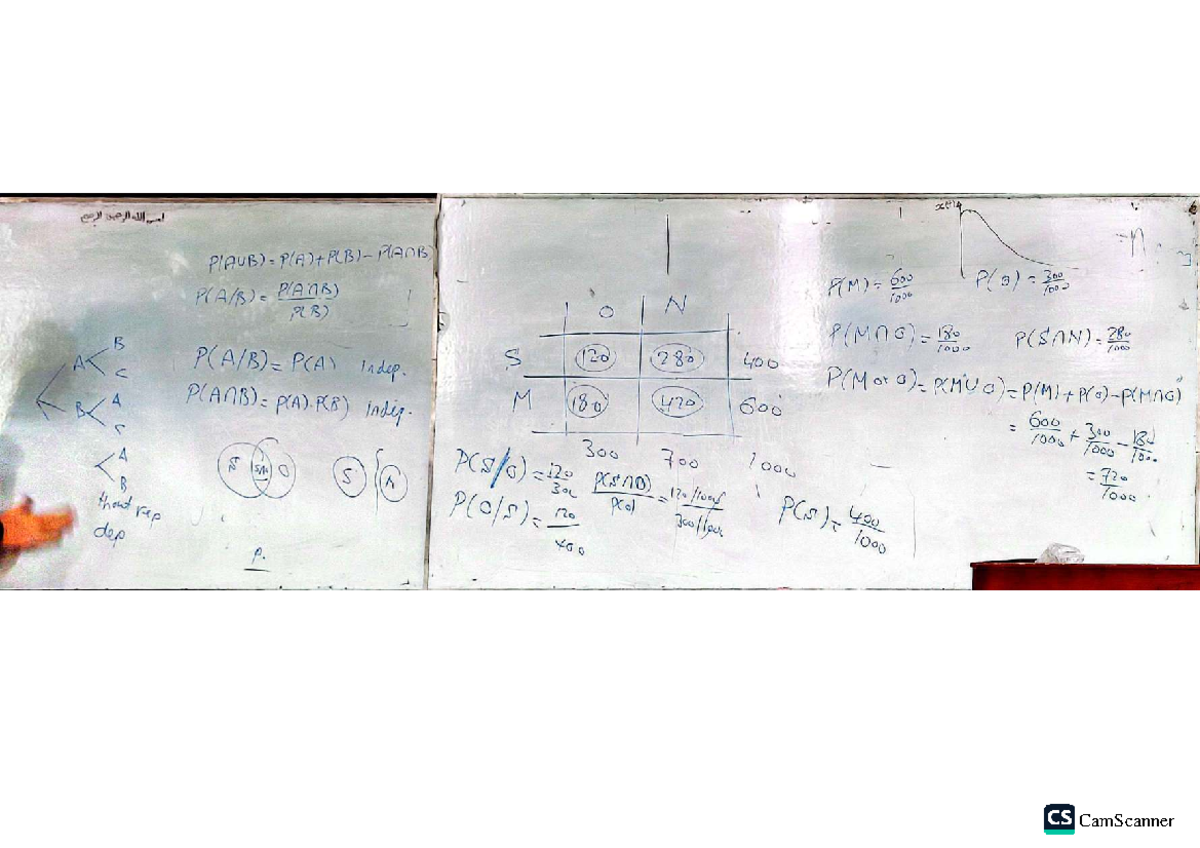 بسم الله الرحمن الرحيم
P(A∪B) = P(A) + P(B) − P(A∩B)
P(A/B) = P(A∩B)
P(B)
P(A/B) = P(A) indep.
P(A∩B) = P(A).P(B) indep.
A B
C
B A
A
B
dep
S S∩O O S
P.
O N
S 120 280 400
M 180 420 600
300 700 1000
P(S/O) = 120/300 P(S∩O)/P(O) = 120/1000 / 300/1000
P(O/S) = 120/400
P(S) = 400/1000
P(M) = 600/1000 P(O) = 300/1000
P(M∩O) = 180/1000 P(S∩N) = 280/1000
P(M or O) = P(M∪O) = P(M) + P(O) − P(M∩O)
= 600/1000 + 300/1000 − 180/1000
= 720/1000
CS CamScanner